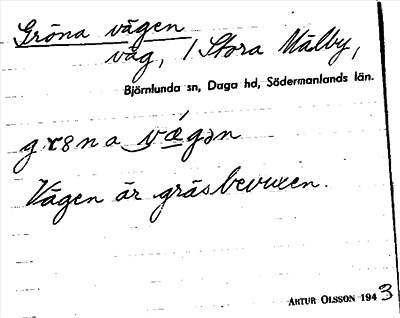 Gröna vägen
väg, i Stora Mälby,
Björnlunda sn, Daga hd, Södermanlands län.
Vägen är gräsbevuxen.
ARTUR OLSSON 1943